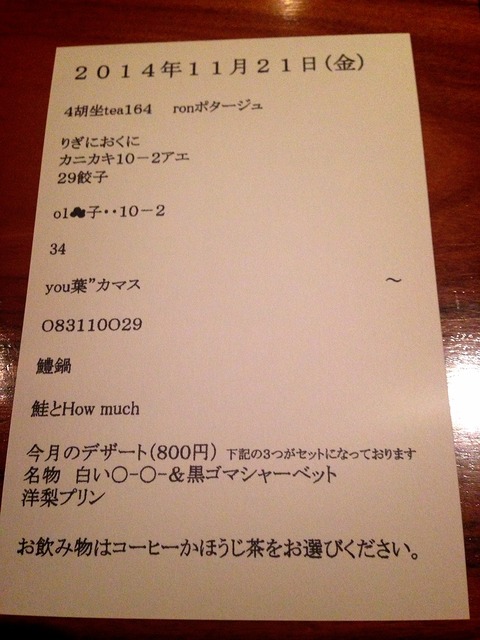 2014年11月21日(金)
4胡坐tea164 ronポタージュ
りぎにおくに
カニカキ10-2アエ
29餃子
o1♣子・・10-2
34
you葉”カマス ～
O83110O29
鱧鍋
鮭とHow much
今月のデザート(800円) 下記の3つがセットになっております
名物 白い〇-〇-&黒ゴマシャーベット
洋梨プリン
お飲み物はコーヒーかほうじ茶をお選びください。